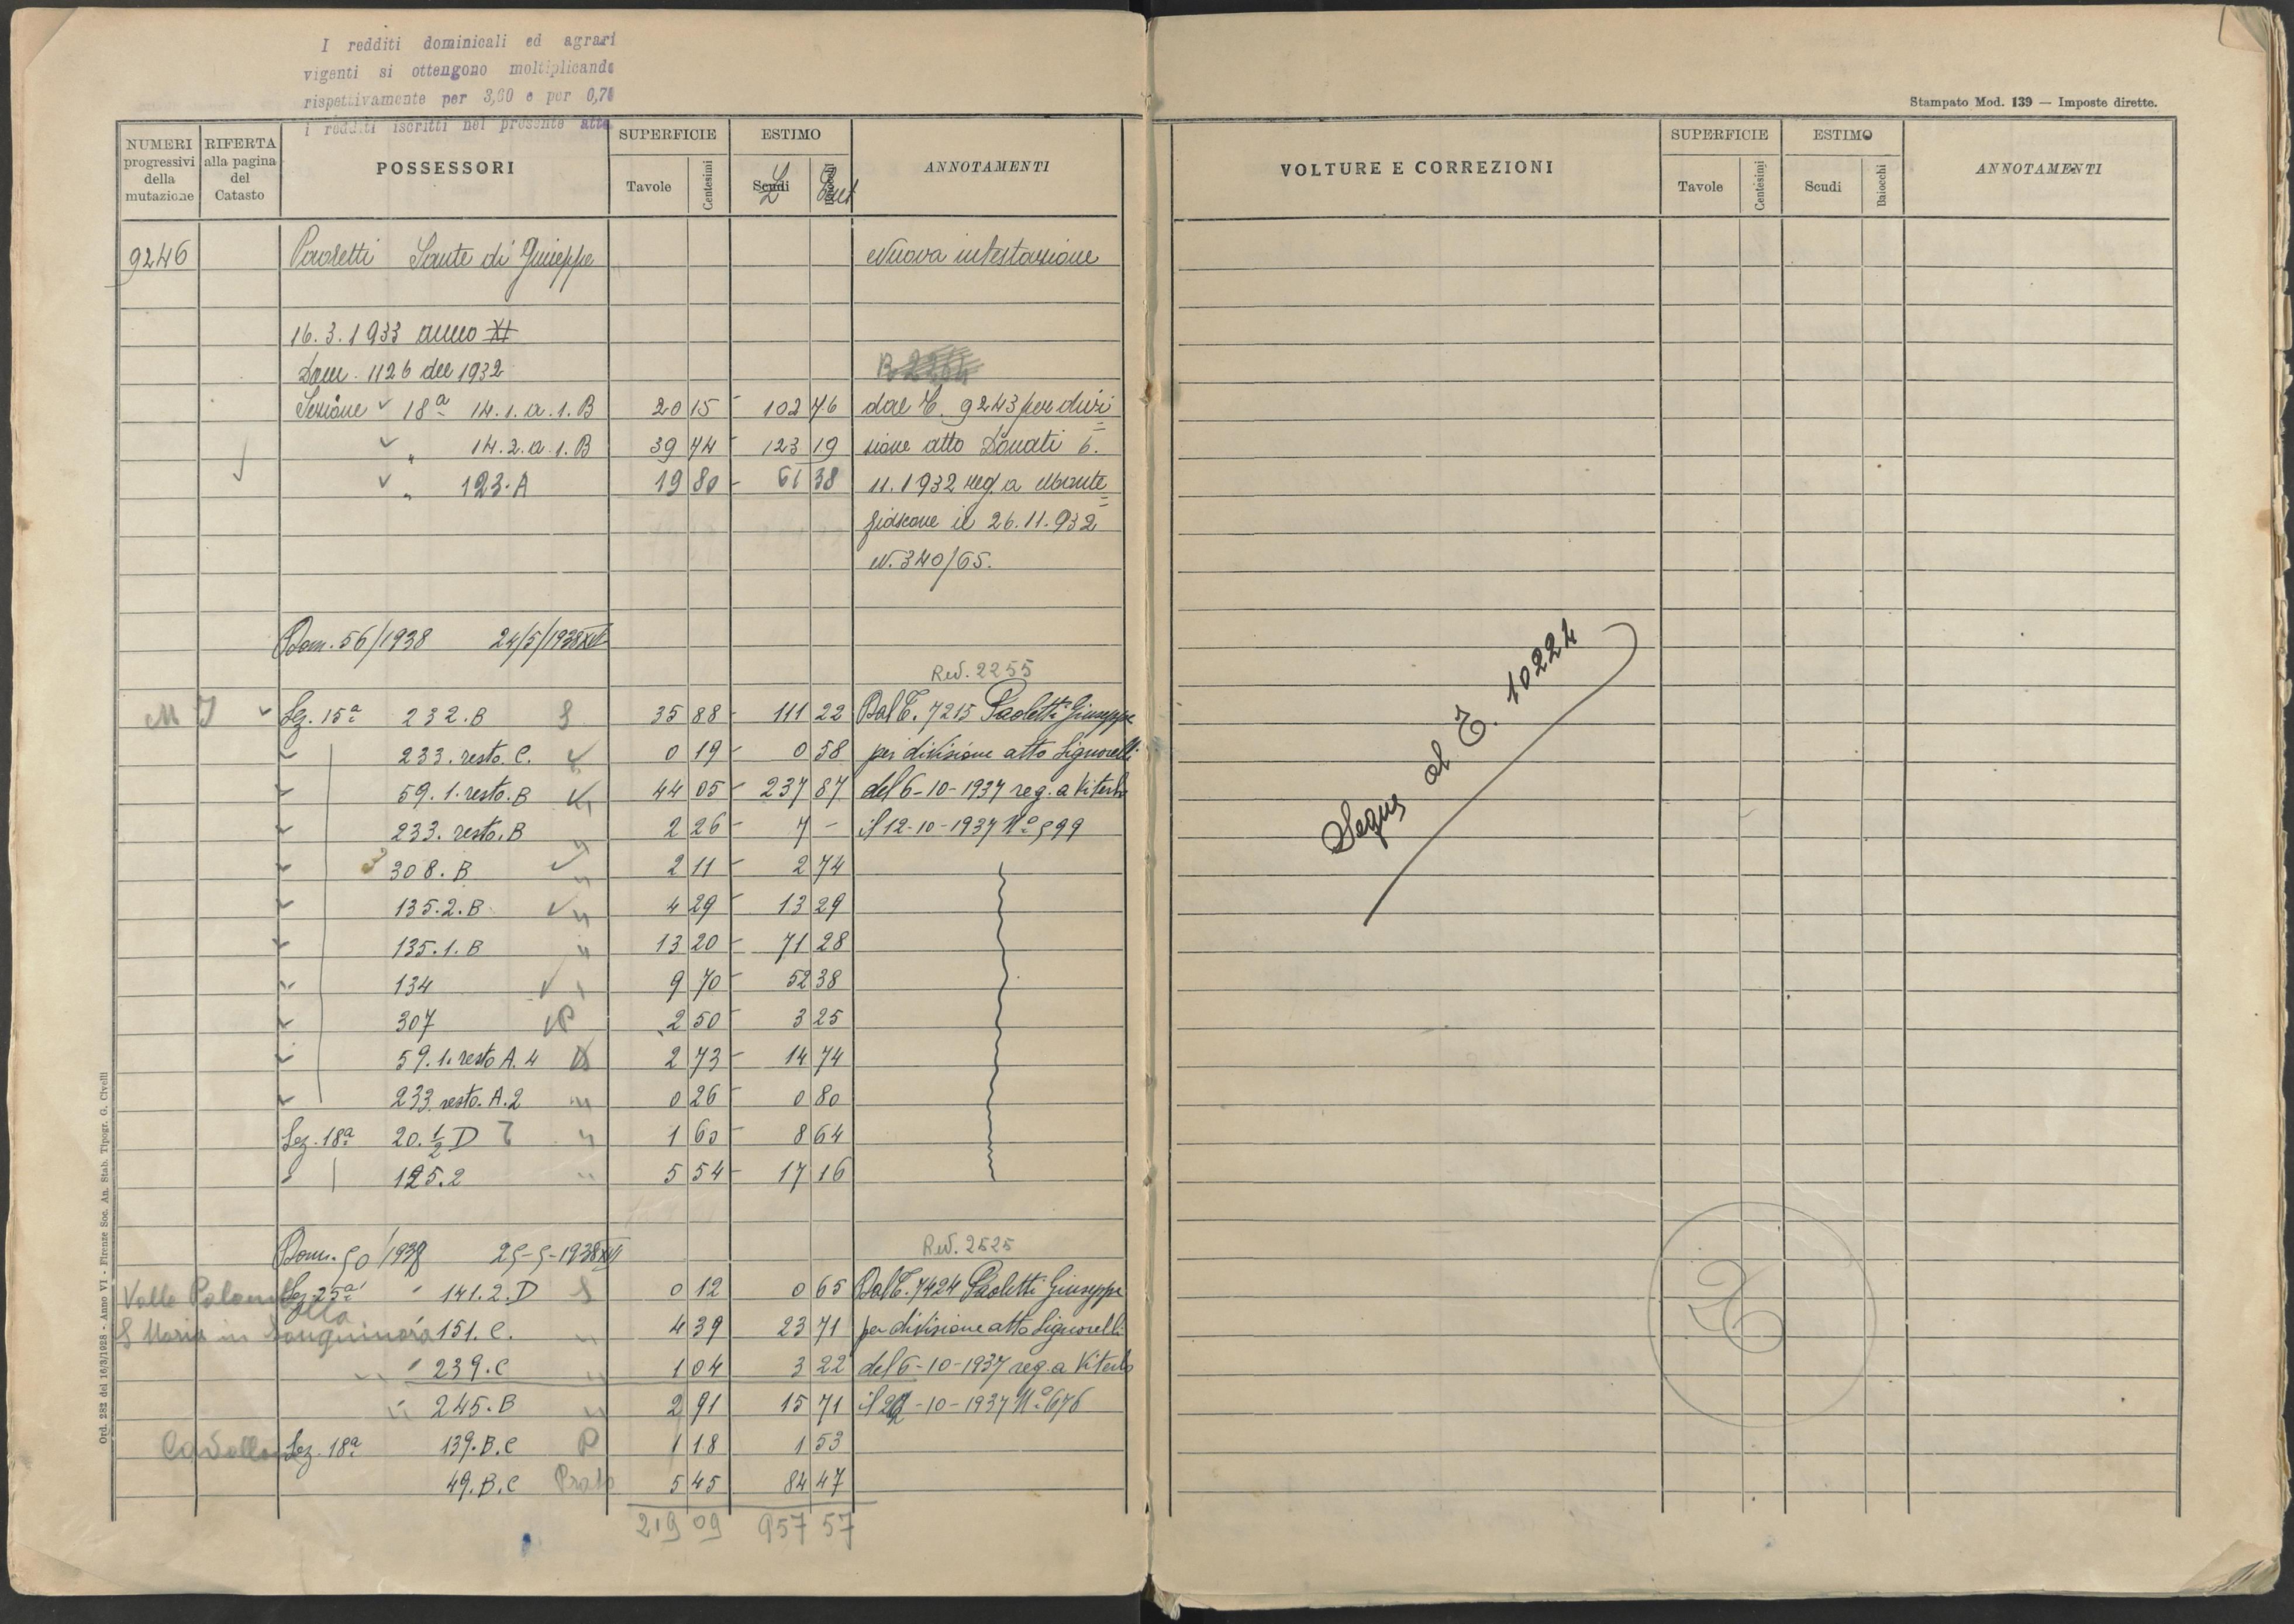 I redditi dominicali ed agrari
vigenti si ottengono moltiplicando
rispettivamente per 3,60 e per 0,70
i redditi iscritti nel presente atto
Stampato Mod. 139 — Imposte dirette.
NUMERI progressivi della mutazione
RIFERTA alla pagina del Catasto
POSSESSORI
SUPERFICIE
Tavole Centesimi
ESTIMO
Scudi
ANNOTAMENTI
VOLTURE E CORREZIONI
SUPERFICIE
Tavole Centesimi
ESTIMO
Scudi Baiocchi
ANNOTAMENTI
9246 Paoletti Sante di Giuseppe Nuova intestazione
16.3.1933 anno XI
Dom. 1126 del 1932
Sezione 18ª 14.1.a.1.B 20 15 102 46 dal T. 9243 per divi
" 14.2.a.1.B 39 74 123 19 sione atto Donati 6.
" 123.A 19 80 61 38 11.1932 reg. a Monte
fiascone il 26.11.932
N. 340/65.
Dom. 56/1938 24/5/1938 XVI
Red. 2255
Sez. 15ª 232.B S 35 88 111 22 Dal T. 7215 Paoletti Giuseppe
233. resto. C. 0 19 0 58 per divisione atto Signorelli
59.1. resto. B 44 05 237 87 del 6-10-1937 reg. a Viterbo
233. resto. B 2 26 7 — il 12-10-1937 Nº 599
308. B 2 11 2 74
135.2.B 4 29 13 29
135.1.B 13 20 71 28
134 9 70 52 38
307 P 2 50 3 25
59.1. resto A.4 2 73 14 74
233 resto. A.2 0 26 0 80
Sez. 18ª 20.½ D 1 60 8 64
125.2 5 54 17 16
Dom. 50/1938 25-5-1938 XVI
Red. 2525
Sez. 25ª 141.2.D S 0 12 0 65 Dal T. 7424 Paoletti Giuseppe
S Maria in 151. C. 4 39 23 71 per divisione atto Signorelli
239. C 1 04 3 22 del 6-10-1937 reg. a Viterbo
245. B 2 91 15 71 il -10-1937 Nº 676
Sez. 18ª 139. B. C P 1 18 1 53
49. B. C Prato 5 45 84 47
219 09 957 57
Segue al T. 10224
Ord. 282 del 16/3/1928 - Anno VI - Firenze Soc. An. Stab. Tipogr. G. Civelli